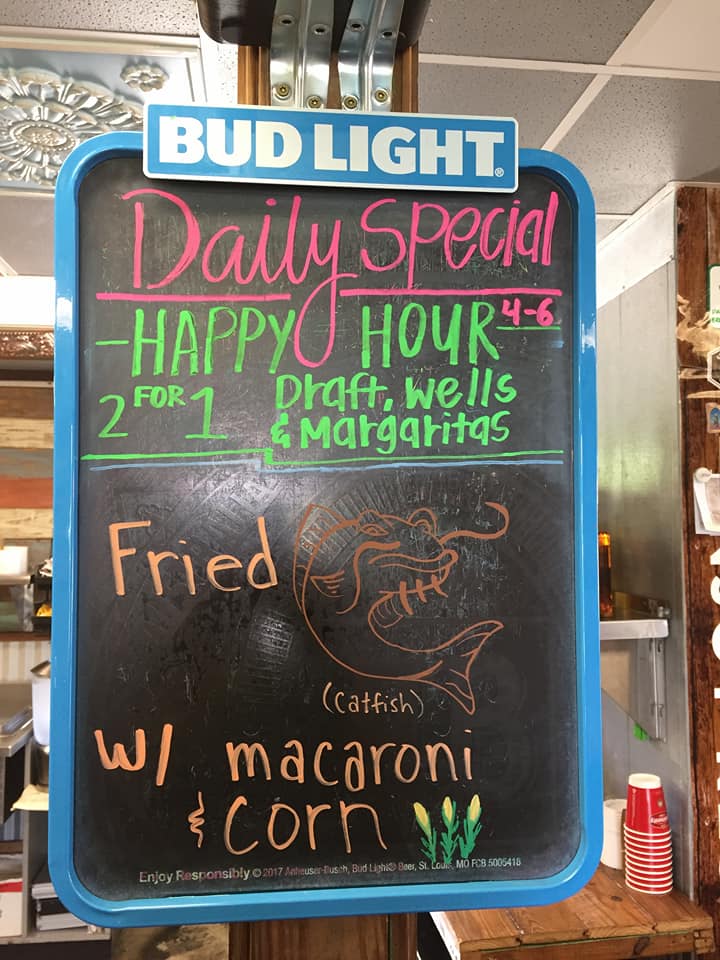 BUD LIGHT®
Daily Special
-HAPPY HOUR 4-6
2 FOR 1 Draft, wells
& Margaritas
Fried
(Catfish)
w/ macaroni
& corn
Enjoy Responsibly © 2017 Anheuser-Busch, Bud Light® Beer, St. Louis, MO FCB 5005418